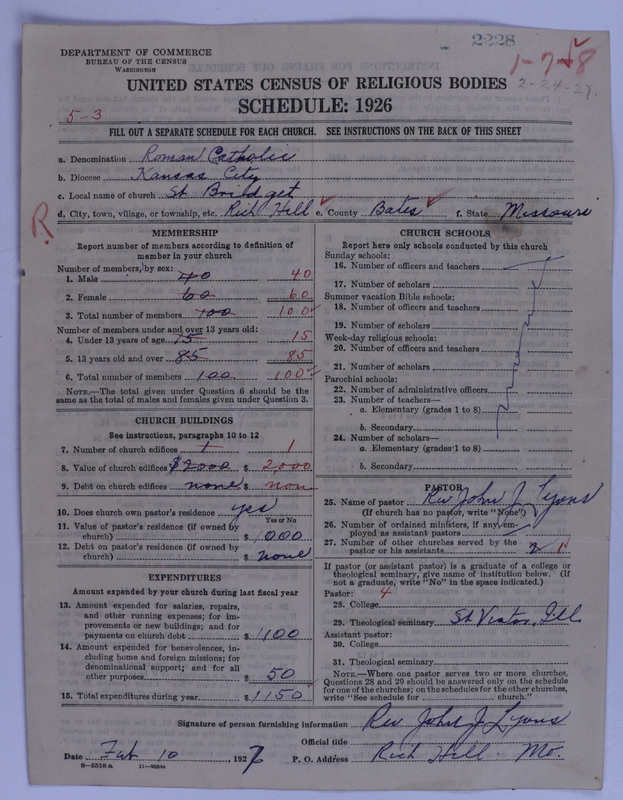 2228
1-7-18
2-24-27.
DEPARTMENT OF COMMERCE
BUREAU OF THE CENSUS
WASHINGTON
UNITED STATES CENSUS OF RELIGIOUS BODIES
SCHEDULE: 1926
5-3
FILL OUT A SEPARATE SCHEDULE FOR EACH CHURCH. SEE INSTRUCTIONS ON THE BACK OF THIS SHEET
a. Denomination Roman Catholic
b. Diocese Kansas City
c. Local name of church St Bridget
d. City, town, village, or township, etc. Rich Hill e. County Bates f. State Missouri
R
MEMBERSHIP
Report number of members according to definition of
member in your church
Number of members, by sex:
1. Male 40 40
2. Female 60 60
3. Total number of members 100 100
Number of members under and over 13 years old:
4. Under 13 years of age 15 15
5. 13 years old and over 85 85
6. Total number of members 100 100
NOTE.—The total given under Question 6 should be the
same as the total of males and females given under Question 3.
CHURCH BUILDINGS
See instructions, paragraphs 10 to 12
7. Number of church edifices 1 1
8. Value of church edifices $2000 $ 2,000
9. Debt on church edifices none $ non
10. Does church own pastor's residence? yes
Yes or No
11. Value of pastor's residence (if owned by
church) $ 1000
12. Debt on pastor's residence (if owned by
church) $ none
EXPENDITURES
Amount expended by your church during last fiscal year
13. Amount expended for salaries, repairs,
and other running expenses; for im-
provements or new buildings; and for
payments on church debt $ 1100
14. Amount expended for benevolences, in-
cluding home and foreign missions; for
denominational support; and for all
other purposes $ 50
15. Total expenditures during year $ 1150
CHURCH SCHOOLS
Report here only schools conducted by this church
Sunday schools:
16. Number of officers and teachers
17. Number of scholars
Summer vacation Bible schools:
18. Number of officers and teachers
19. Number of scholars
Week-day religious schools:
20. Number of officers and teachers
21. Number of scholars
Parochial schools:
22. Number of administrative officers
23. Number of teachers—
a. Elementary (grades 1 to 8)
b. Secondary
24. Number of scholars—
a. Elementary (grades 1 to 8)
b. Secondary
PASTOR
25. Name of pastor Rev John J. Lyons
(If church has no pastor, write "None")
26. Number of ordained ministers, if any, em-
ployed as assistant pastors
27. Number of other churches served by the
pastor or his assistants 2
If pastor (or assistant pastor) is a graduate of a college or
theological seminary, give name of institution below. (If
not a graduate, write "No" in the space indicated.)
Pastor: 4
28. College
29. Theological seminary St Viator, Ill
Assistant pastor:
30. College
31. Theological seminary
NOTE.—Where one pastor serves two or more churches,
Questions 28 and 29 should be answered only on the schedule
for one of the churches; on the schedules for the other churches,
write "See schedule for church."
Signature of person furnishing information Rev John J Lyons
Official title
Date Feb 10, 1927 P. O. Address Rich Hill. Mo.
8-5518 a